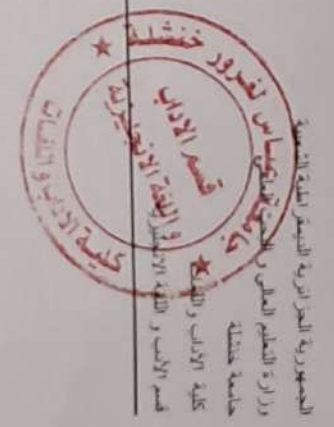 الجمهورية الجزائرية الديمقراطية الشعبية
وزارة التعليم العالي و البحث العلمي
جامعة خنشلة
كلية الآداب واللغات
قسم الأدب و اللغة الانجليزية
جامعة عباس لغرور خنشلة
كلية الآداب و اللغات
قسم الآداب
و اللغة الانجليزية